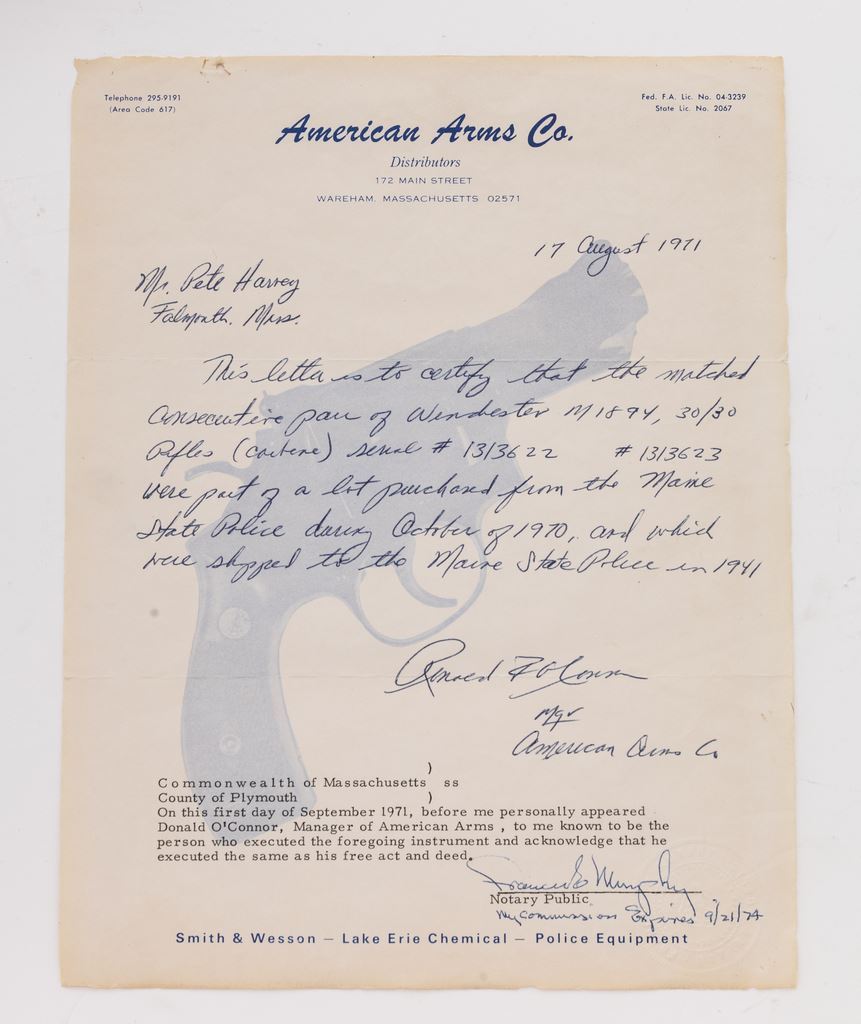 Telephone 295-9191
(Area Code 617)
Fed. F.A. Lic. No. 04-3239
State Lic. No. 2067
American Arms Co.
Distributors
172 MAIN STREET
WAREHAM, MASSACHUSETTS 02571
17 August 1971
Mr. Pete Harvey
Falmouth, Mass.
This letter is to certify that the matched
consecutive pair of Winchester M1894, 30/30
Rifles (carbine) serial # 1313622 # 1313623
were part of a lot purchased from the Maine
State Police during October of 1970, and which
were shipped to the Maine State Police in 1941
O'Connor
Mgr
American Arms Co
)
Commonwealth of Massachusetts ss
County of Plymouth )
On this first day of September 1971, before me personally appeared
Donald O'Connor, Manager of American Arms , to me known to be the
person who executed the foregoing instrument and acknowledge that he
executed the same as his free act and deed.
Murphy
Notary Public
My Commission Expires 9/21/74
Smith & Wesson — Lake Erie Chemical — Police Equipment